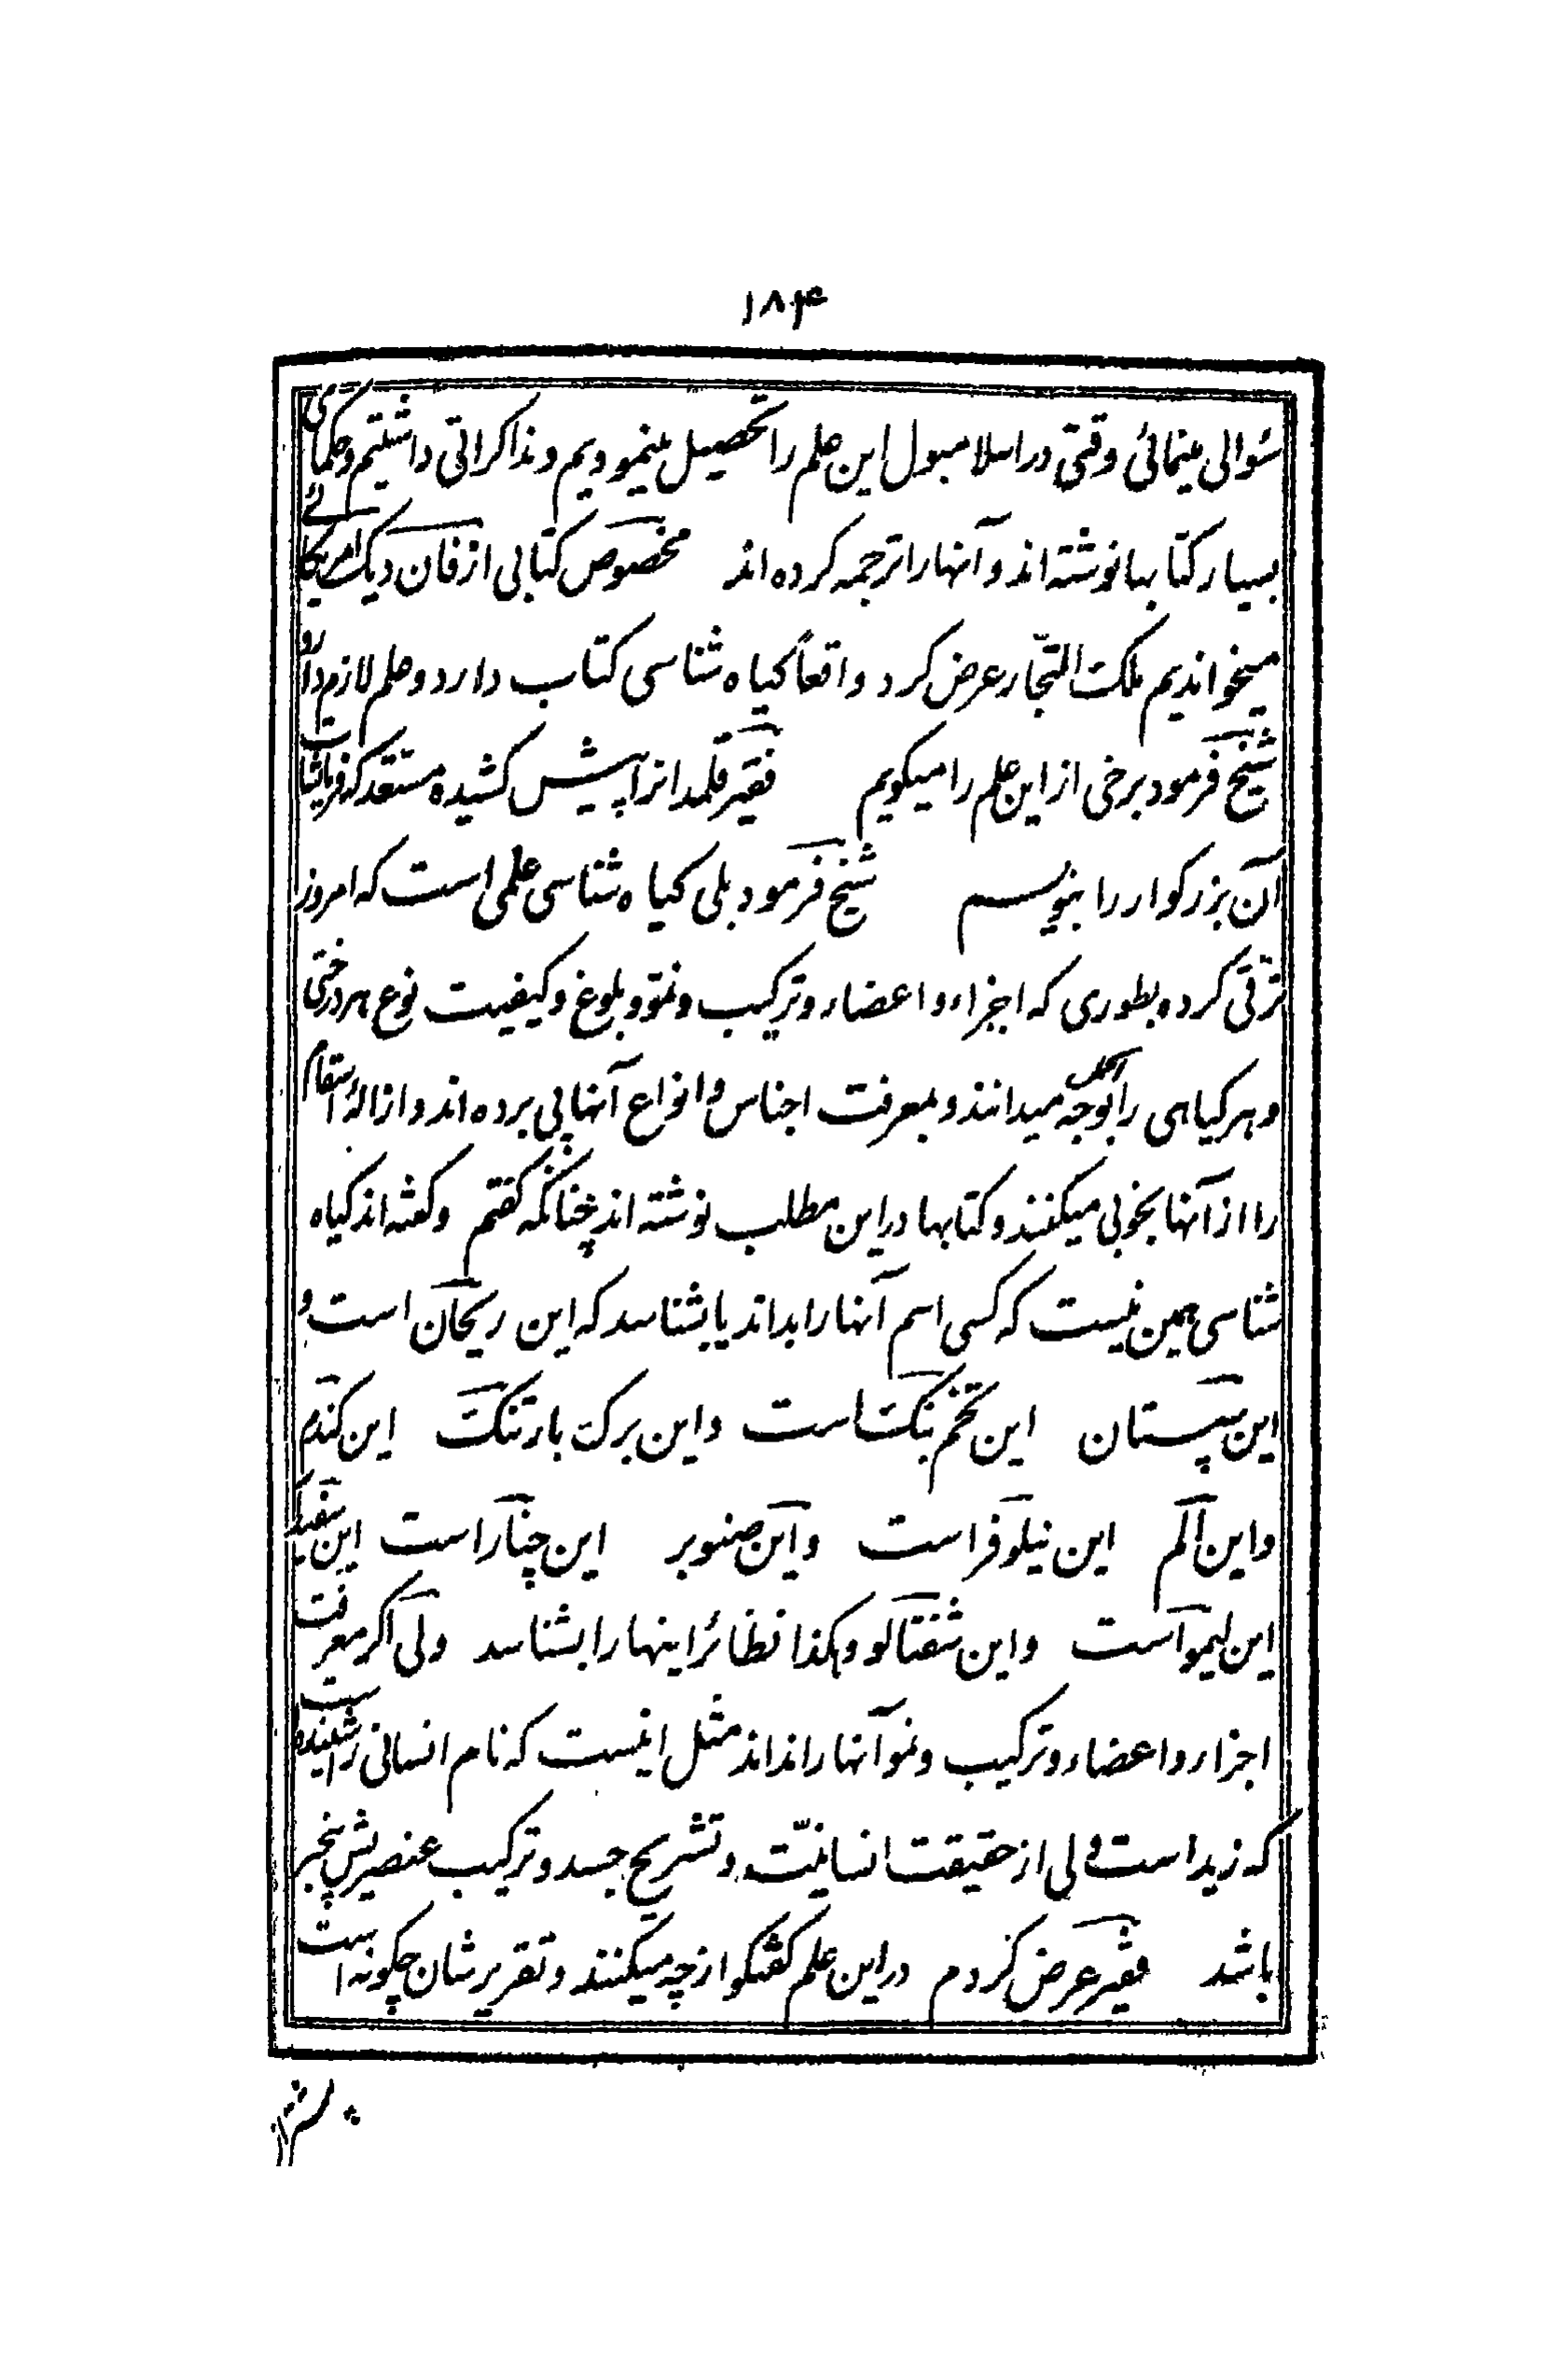 ۱۸۴
سؤالی مینمائی وقتی در اسلامبول این علم را تحصیل مینمودیم و مذاکراتی داشتیم و حکمای
بسیار کتابها نوشته اند و آنها را ترجمه کرده اند مخصوص کتابی از فان دیک امریکائی
میخواندیم ملک التجّار عرض کرد واقعاً کیاه شناسی کتاب دارد و علم لازم دارد
شیخ فرمود برخی از این علم را میکویم فقیر قلمدانرا پیش کشیده مستعد که فرمایشات
آن بزرکوار را بنویسم شیخ فرمود بلی کیاه شناسی علمی است که امروز
ترقی کرده بطوری که اجزاء و اعضاء و ترکیب و نموّ و بلوغ و کیفیت نوع هر درختی
و هر کیاهی را بوجه اکمل میدانند و بمعرفت اجناس و انواع آنها پی برده اند و ازالهٔ اسقام
را از آنها بخوبی میکنند و کتابها در این مطلب نوشته اند چنانکه کفتم و کفته اند کیاه
شناسی همین نیست که کسی اسم آنها را بداند یا بشناسد که این ریحان است و
این سپستان این تخم بنک است و این برک بارتنک این کندم
و این اکم این نیلوفر است و این صنوبر این چنار است این
این لیمو است و این شفتالو و هکذا نظائر اینها را بشناسد ولی اکر معرفت
اجزاء و اعضاء و ترکیب و نمو آنها را نداند مثل اینست که نام انسانی را شنیده
که زید است ولی از حقیقت انسانیّت و تشریح جسد و ترکیب عنصریش بیخبر
باشد فقیر عرض کردم در این علم کفتکو از چه میکنند و تقریرشان چکونه است